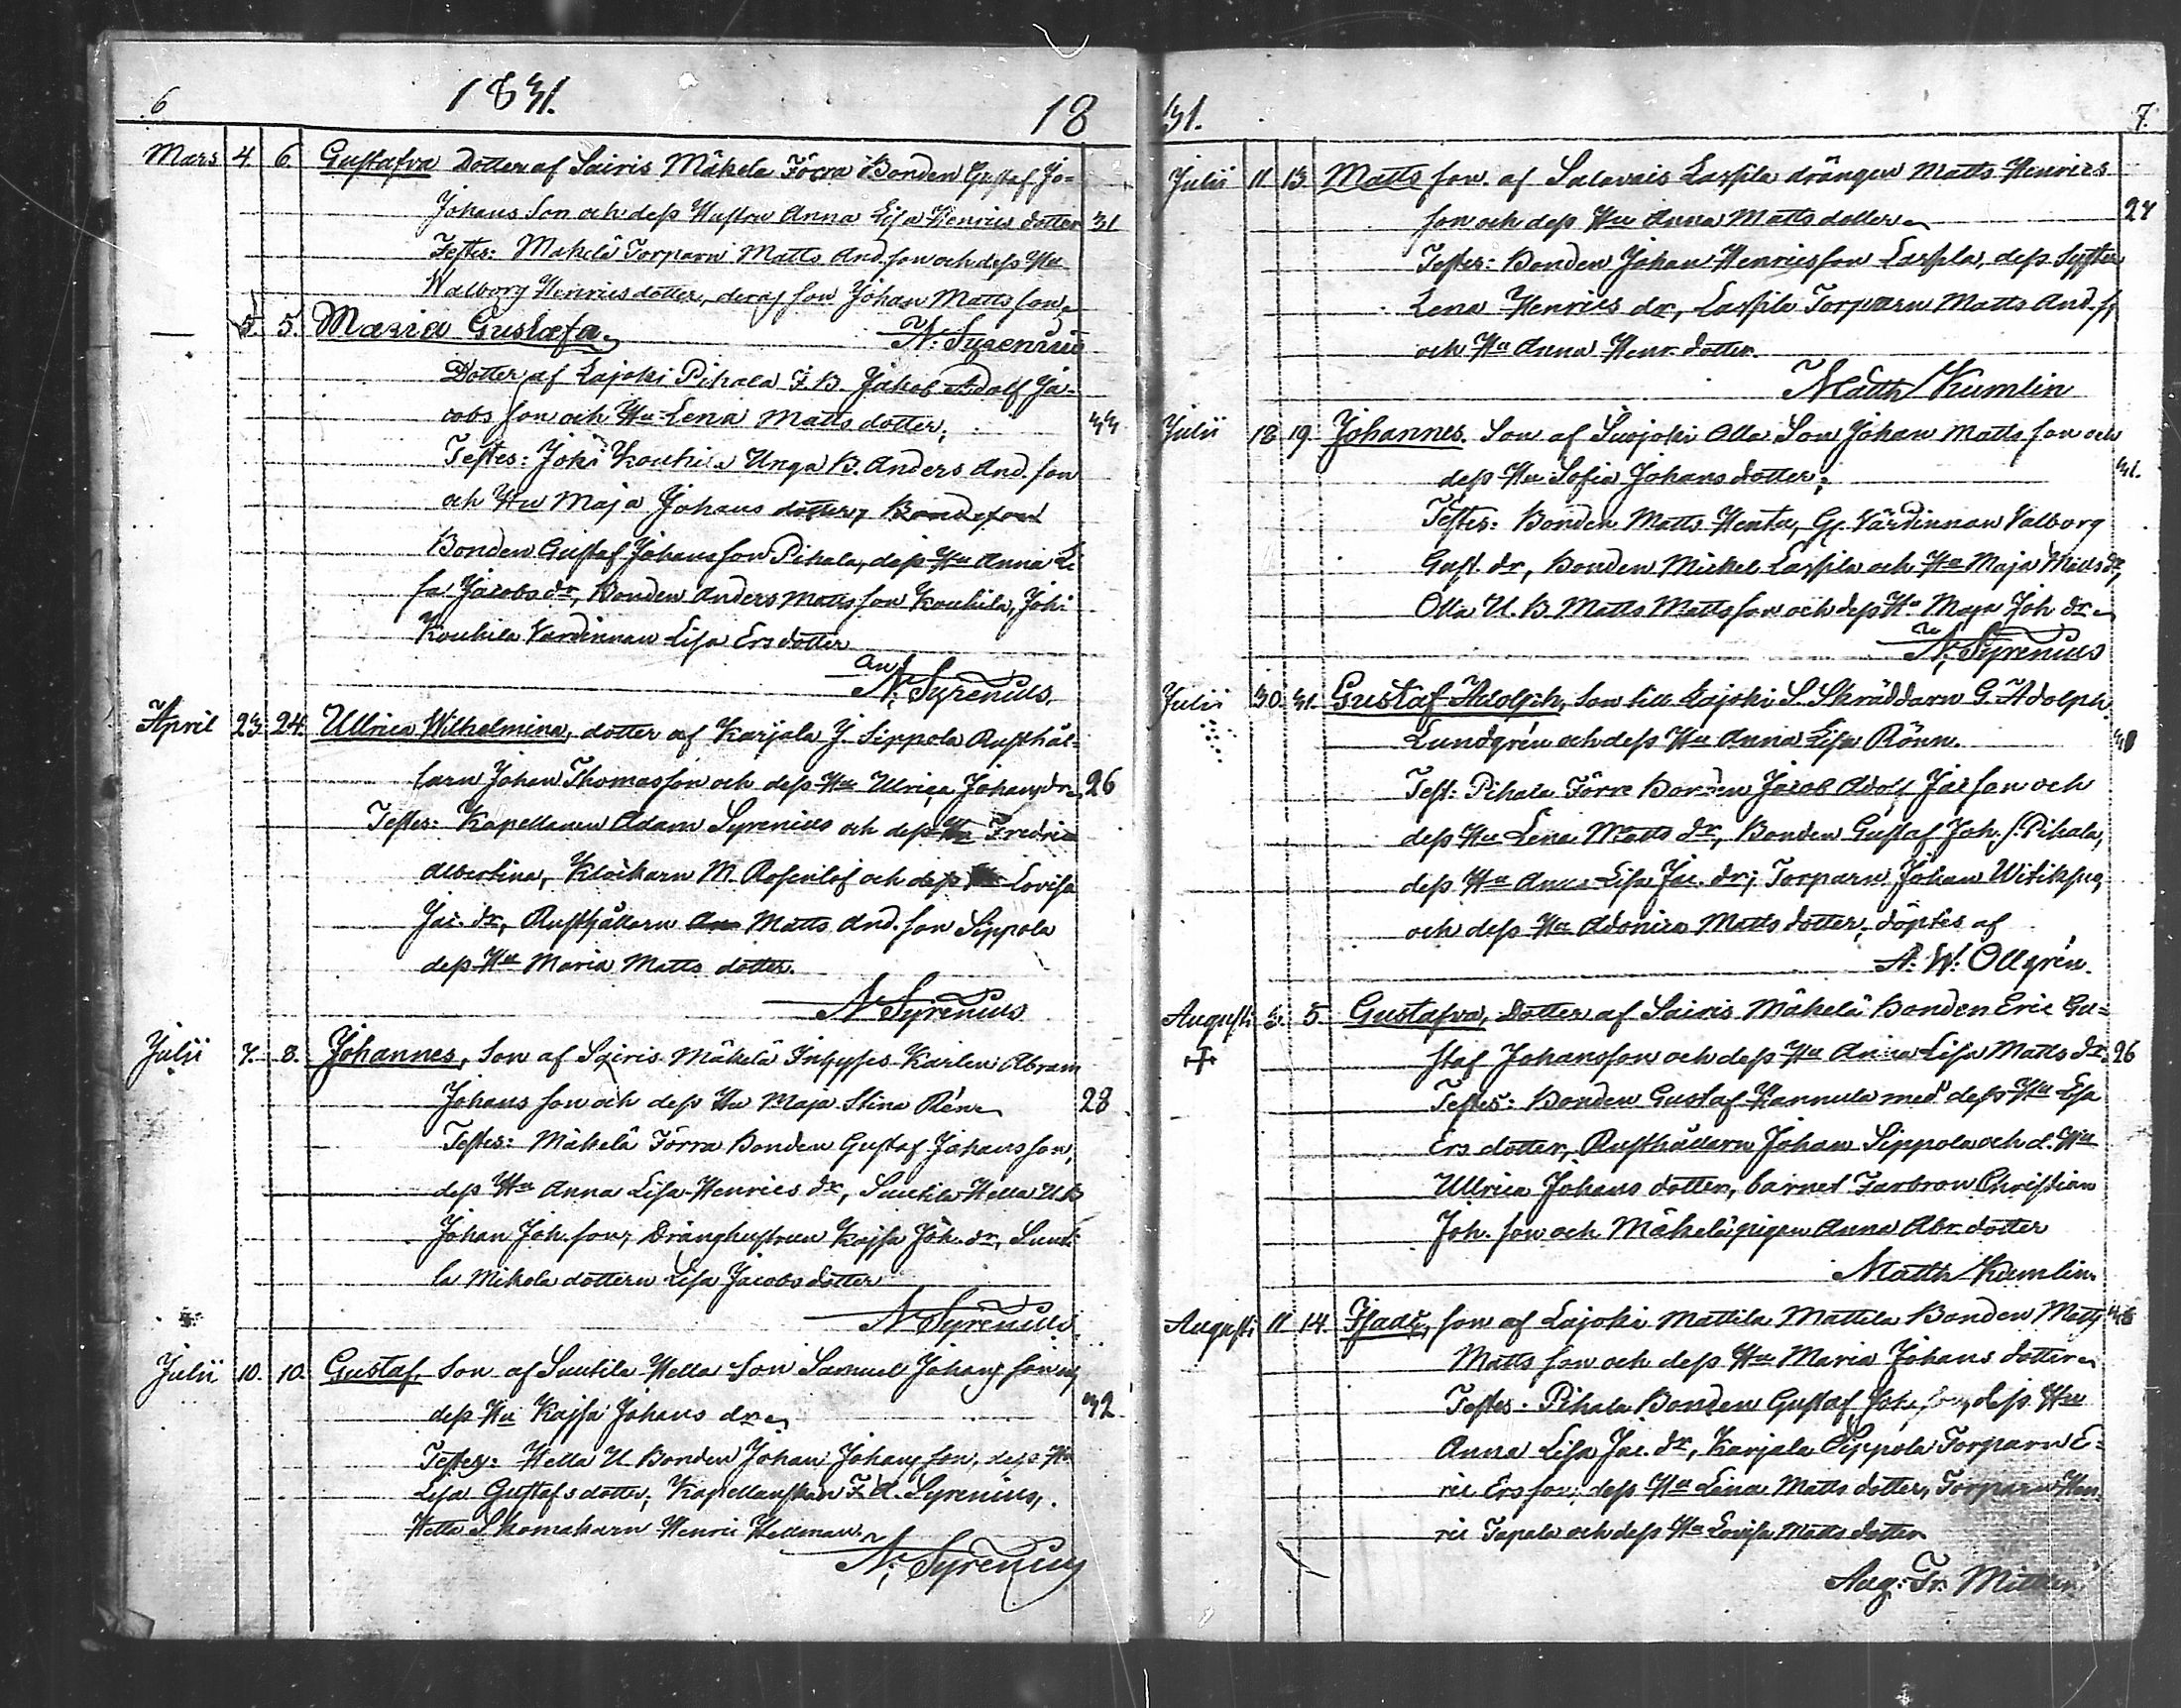 6 1831. 18
Mars 4. 6. Gustafva Dotter af Sairis Mäkelä Förra Bonden Gustaf Jo=
Johans Son och dess Hustru Anna Lisa Henrics dotter 31
Testes: Mäkelä Torparn Matts And. son och dess Hu
Walborg Henricsdotter, deras son Johan Matts son,
— 5. 5. Maria Gustafa. N. Syrenius
Dotter af Lajoki Pihala F. B. Jakob Adolf Ja-
cobs son och Hu Lena Matts dotter, 44
Testes: Joki Kouhila Unga B. Anders And. son
och Hu Maja Johans dotter,
Bonden Gustaf Johans son Pihala, dess Hu Anna Li
sa Jacobs dr, Bonden Anders Matts son Kouhila, Joki
Kouhila Värdinnan Lisa Ers dotter
N. Syrenius.
April 23. 24. Ullrica Wilhelmina, dotter af Karjala J. Sippola Rusthål=
larn Johan Thomas son och dess Hu Ulrica Johans dr 26
Testes: Kapellanen Adam Syrenius och dess Hu Fredrica
Albertina, Klockarn M. Rosenlöf och dess Lovisa
Jac. dr, Rusthållarn Matts And. son Sippola
dess Hu Maria Matts dotter.
N Syrenius
Julii 7. 8. Johannes, Son af Sairis Mäkelä Inhyses Karlen Abram
Johans son och dess Hu Maja Stina Rén 28
Testes: Mäkelä Förra Bonden Gustaf Johans son,
dess Hu Anna Lisa Henrics dr, Suutila Hella U.B.
Johan Joh. son, Dränghustrun Kajsa Joh. dr, Suuti
la Mikola dottern Lisa Jacobs dotter
N Syrenius.
Julii 10. 10. Gustaf, Son af Suutila Hella Son Samuel Johans son och
dess Hu Kajsa Johans dr 32
Testes: Hella U. Bonden Johan Johans son, dess Hu
Lisa Gustafs dotter, Kapellanskan F. A. Syrenius,
Hella Skomakarn Henric Hellman.
N. Syrenius
31. 7.
Julii 11 13. Matts son af Salavais Lassila drängen Matts Henrics
son och dess Hu Anna Matts dotter 24
Testes: Bonden Johan Henricsson Lassila, dess Syster
Lena Henrics dr, Lassila Torparn Matts And. s
och Hu Anna Henr. dotter.
Matth Kumlin
Julii 18 19. Johannes. Son af Suojoki Olla Son Johan Matts son och
dess Hu Sofia Johans dotter; 31.
Testes: Bonden Matts Henta, G. Värdinnan Valborg
Gust. dr, Bonden Mickel Lassila och Hu Maja Matts dr,
Olla U. B. Matts Matts son och dess Hu Maja Joh dr
N. Syrenius
Julii 30. 31. Gustaf Adolph, Son till Lajoki S. Skräddarn G. Adolph
Lundgrén och dess Hu Anna Lisa Rönn. 40
Test: Pihala Förre Bonden Jacob Adolf Jac son och
dess Hu Lena Matts dr, Bonden Gustaf Joh. s. Pihala,
dess Hu Anna Lisa Jac. dr; Torparn Johan Witikka
och dess Hu Adonira Matts dotter, döptes af
A. W. Ollgrén.
Augusti 3. 5. Gustafva, Dotter af Sairis Mäkelä Bonden Eric Gu=
staf Johansson och dess Hu Anna Lisa Matts dr. 26
Testes: Bonden Gustaf Hannula med dess Hu Lisa
Ers dotter, Rusthållarn Johan Sippola och d. Hu
Ullrica Johans dotter, barnet Farbron Christian
Joh. son och Mäkelä pigan Anna Abr. dotter
Matth Kumlin.
Augusti 11 14. Isack, son af Lajoki Mattila Mattila Bonden Matts 43
Matts son och dess Hu Maria Johans dotter
Testes. Pihala Bonden Gustaf Joh. son, dess Hu
Anna Lisa Jac. dr, Karjala Sippola Torparn E=
ric Ers son, dess Hu Lena Matts dotter, Torparn Hen
ric Tapala och dess Hu Lovisa Matts dotter
Aug: Fr.